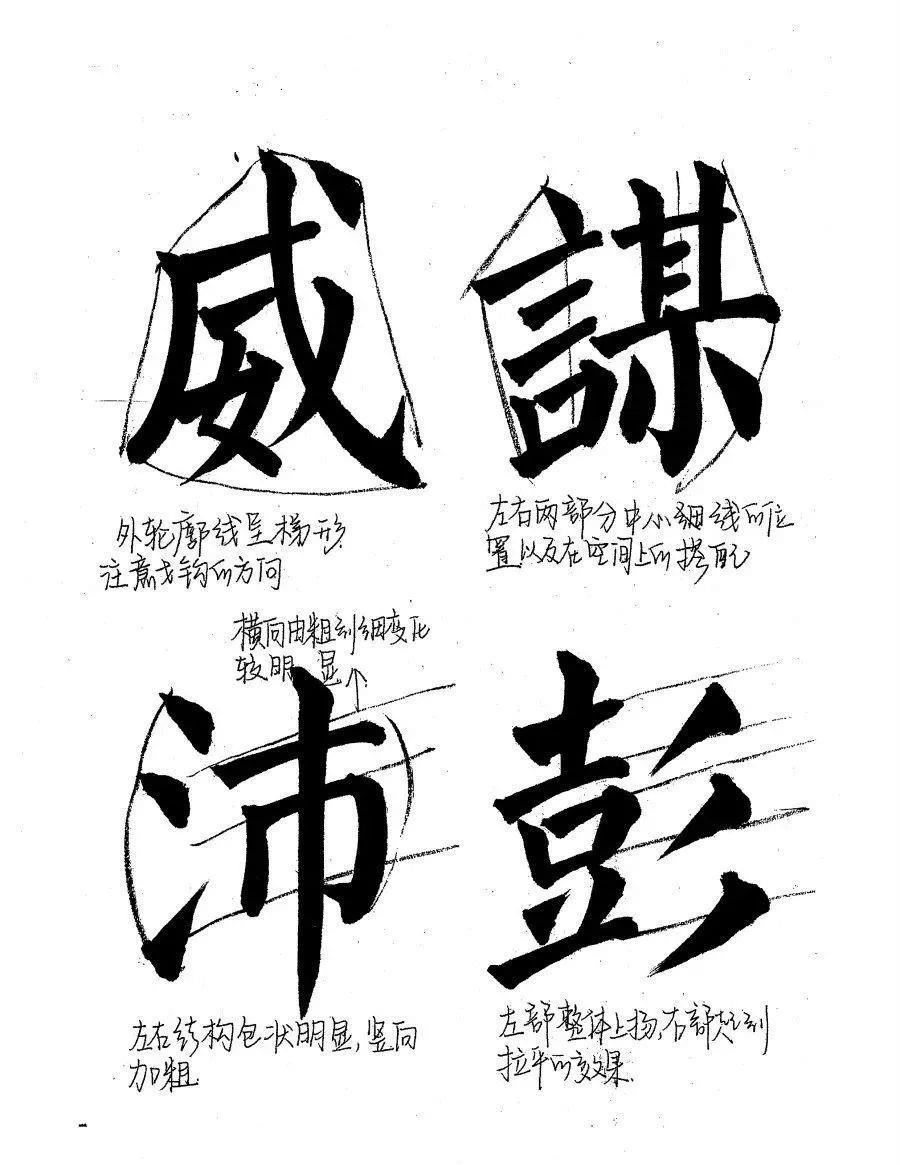 威
謀
外轮廓线呈梯形
注意戈钩的方向
左右两部分中小细线的位
置以及在空间上的搭配
横向由粗到细变化
较明显
沛
彭
左右结构包状明显,竖向
加粗
左部整体上扬,右部起到
拉平的效果